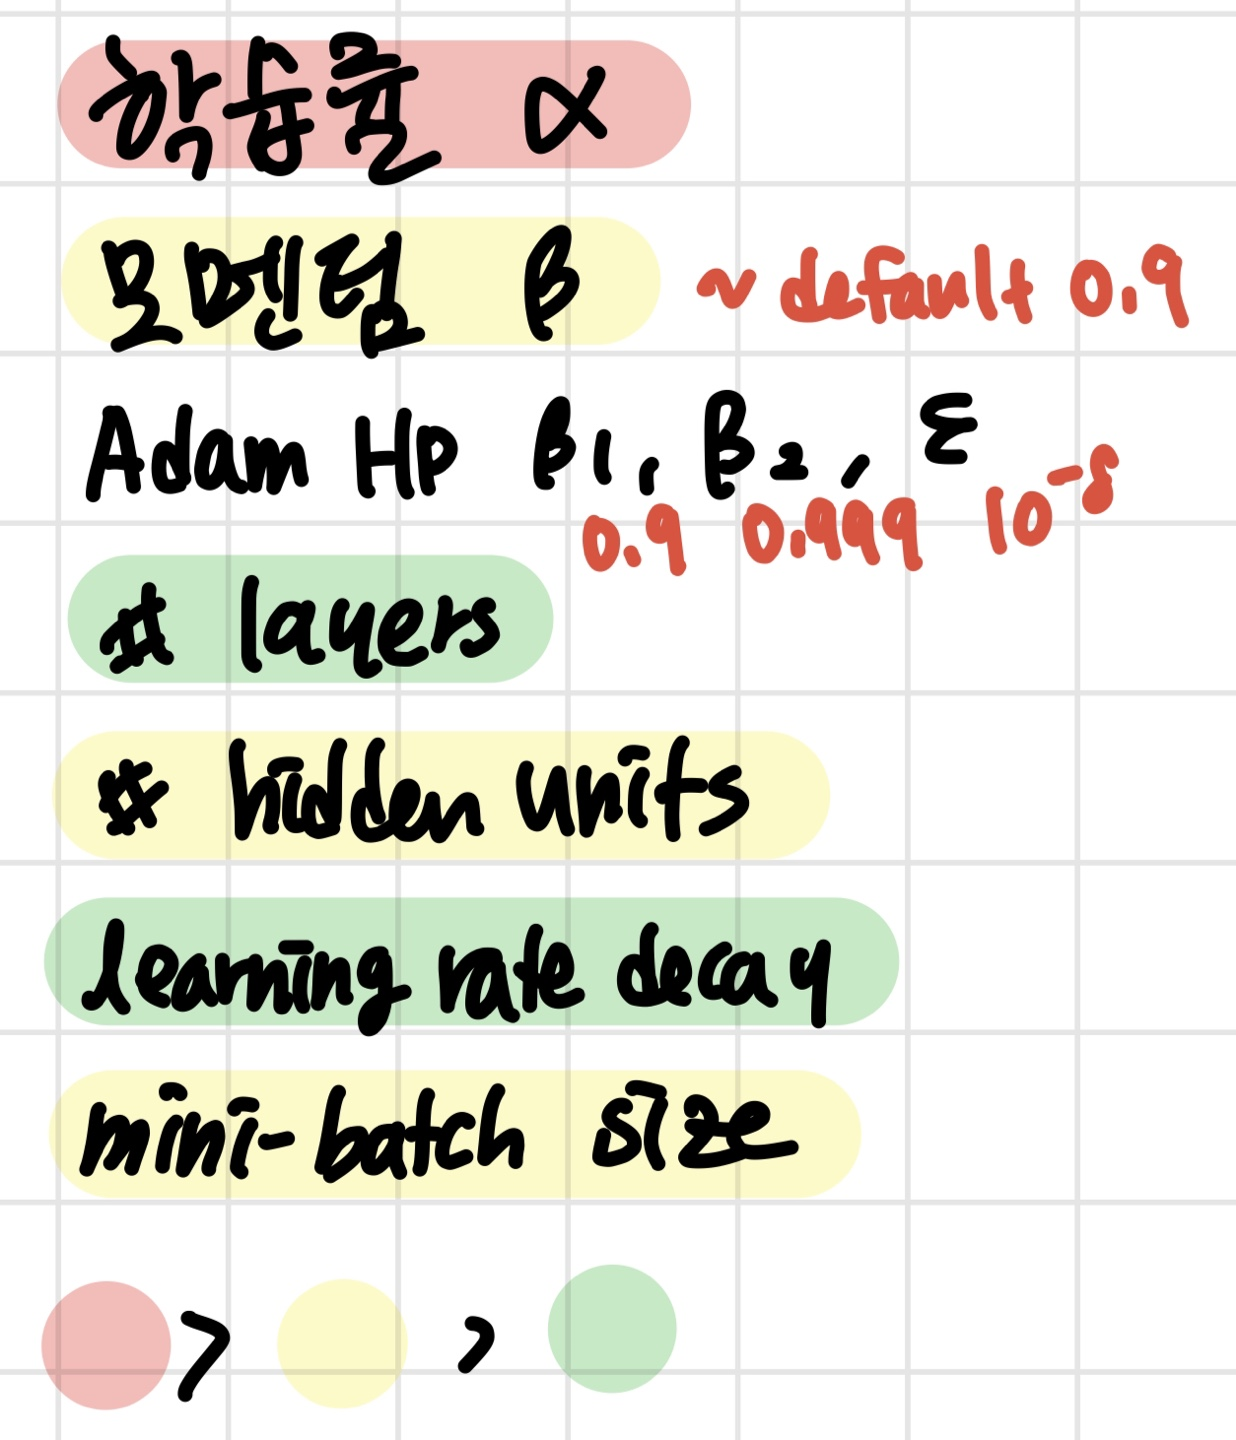 학습률 α
모멘텀 β ~ default 0.9
Adam Hp β1, β2, ε
0.9 0.999 10⁻⁸
# layers
# hidden units
learning rate decay
mini-batch size
> >